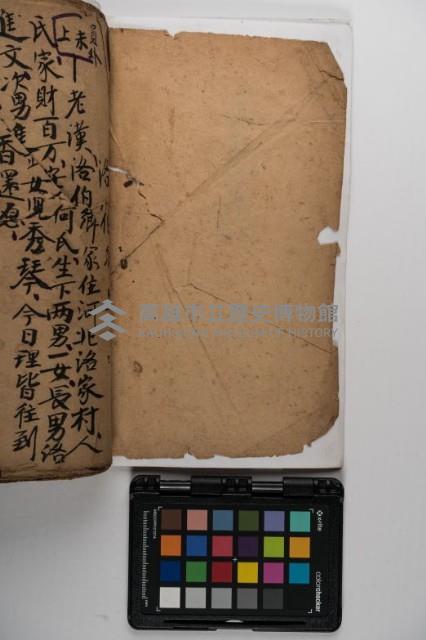 末
上
下老漢洛伯舜家住河北洛家村人
氏家財百万安何氏生下兩男一女長男洛
進文次男進香還愿
女兒秀琴今日理皆往到
高雄市立歷史博物館
KAOHSIUNG MUSEUM OF HISTORY
x-rite
colorchecker